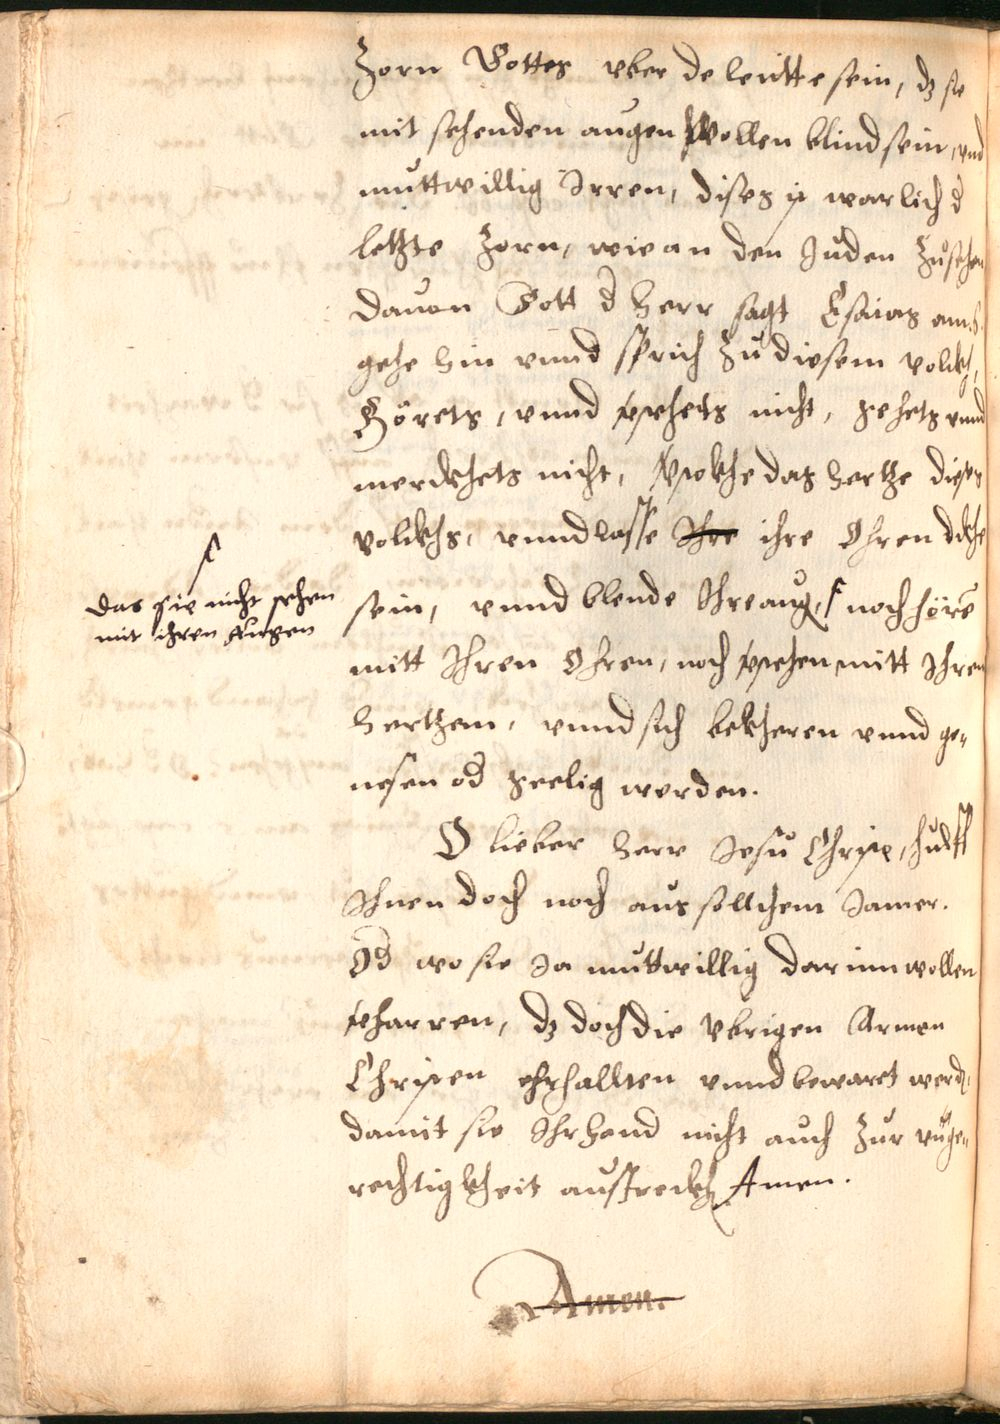 Zorn Gottes vber de leütte sein, dz sie
mit sehenden augen wollen blind sein, vnd
muttwillig Irren, dises ist warlich d
letzte Zorn, wie an den Juden Zusehen
dauon Gott d herr sagt Esaias am 6.
gehe hin vnnd sprich Zu diesem volckh,
Hörets, vnnd verstehets nicht, sehets vnnd
merckhets nicht, verstockhe das hertze dieses
volckhs, vnnd lasse Ihre ihre Ohren dickhe
sein, vnnd blende Ihre aug, noch höre
das sie nicht sehen
mit ihren Augen
mitt Ihren Ohren, noch verstehen mitt Ihren
hertzem, vnnd sich bekheren vnnd ge-
nesen od seelig werden.
O lieber herr Jesu Christe, hülff
Ihnen doch noch aus sollchem Jamer.
Od wo sie Ja muttwillig darinn wollen
verharren, dz doch die vbrigen Armen
Christen ehrhallten vnnd bewaret werd,
damit sie Ihr hand nicht auch Zur vnge-
rechtigkheit austreckh Amen.
Amen.